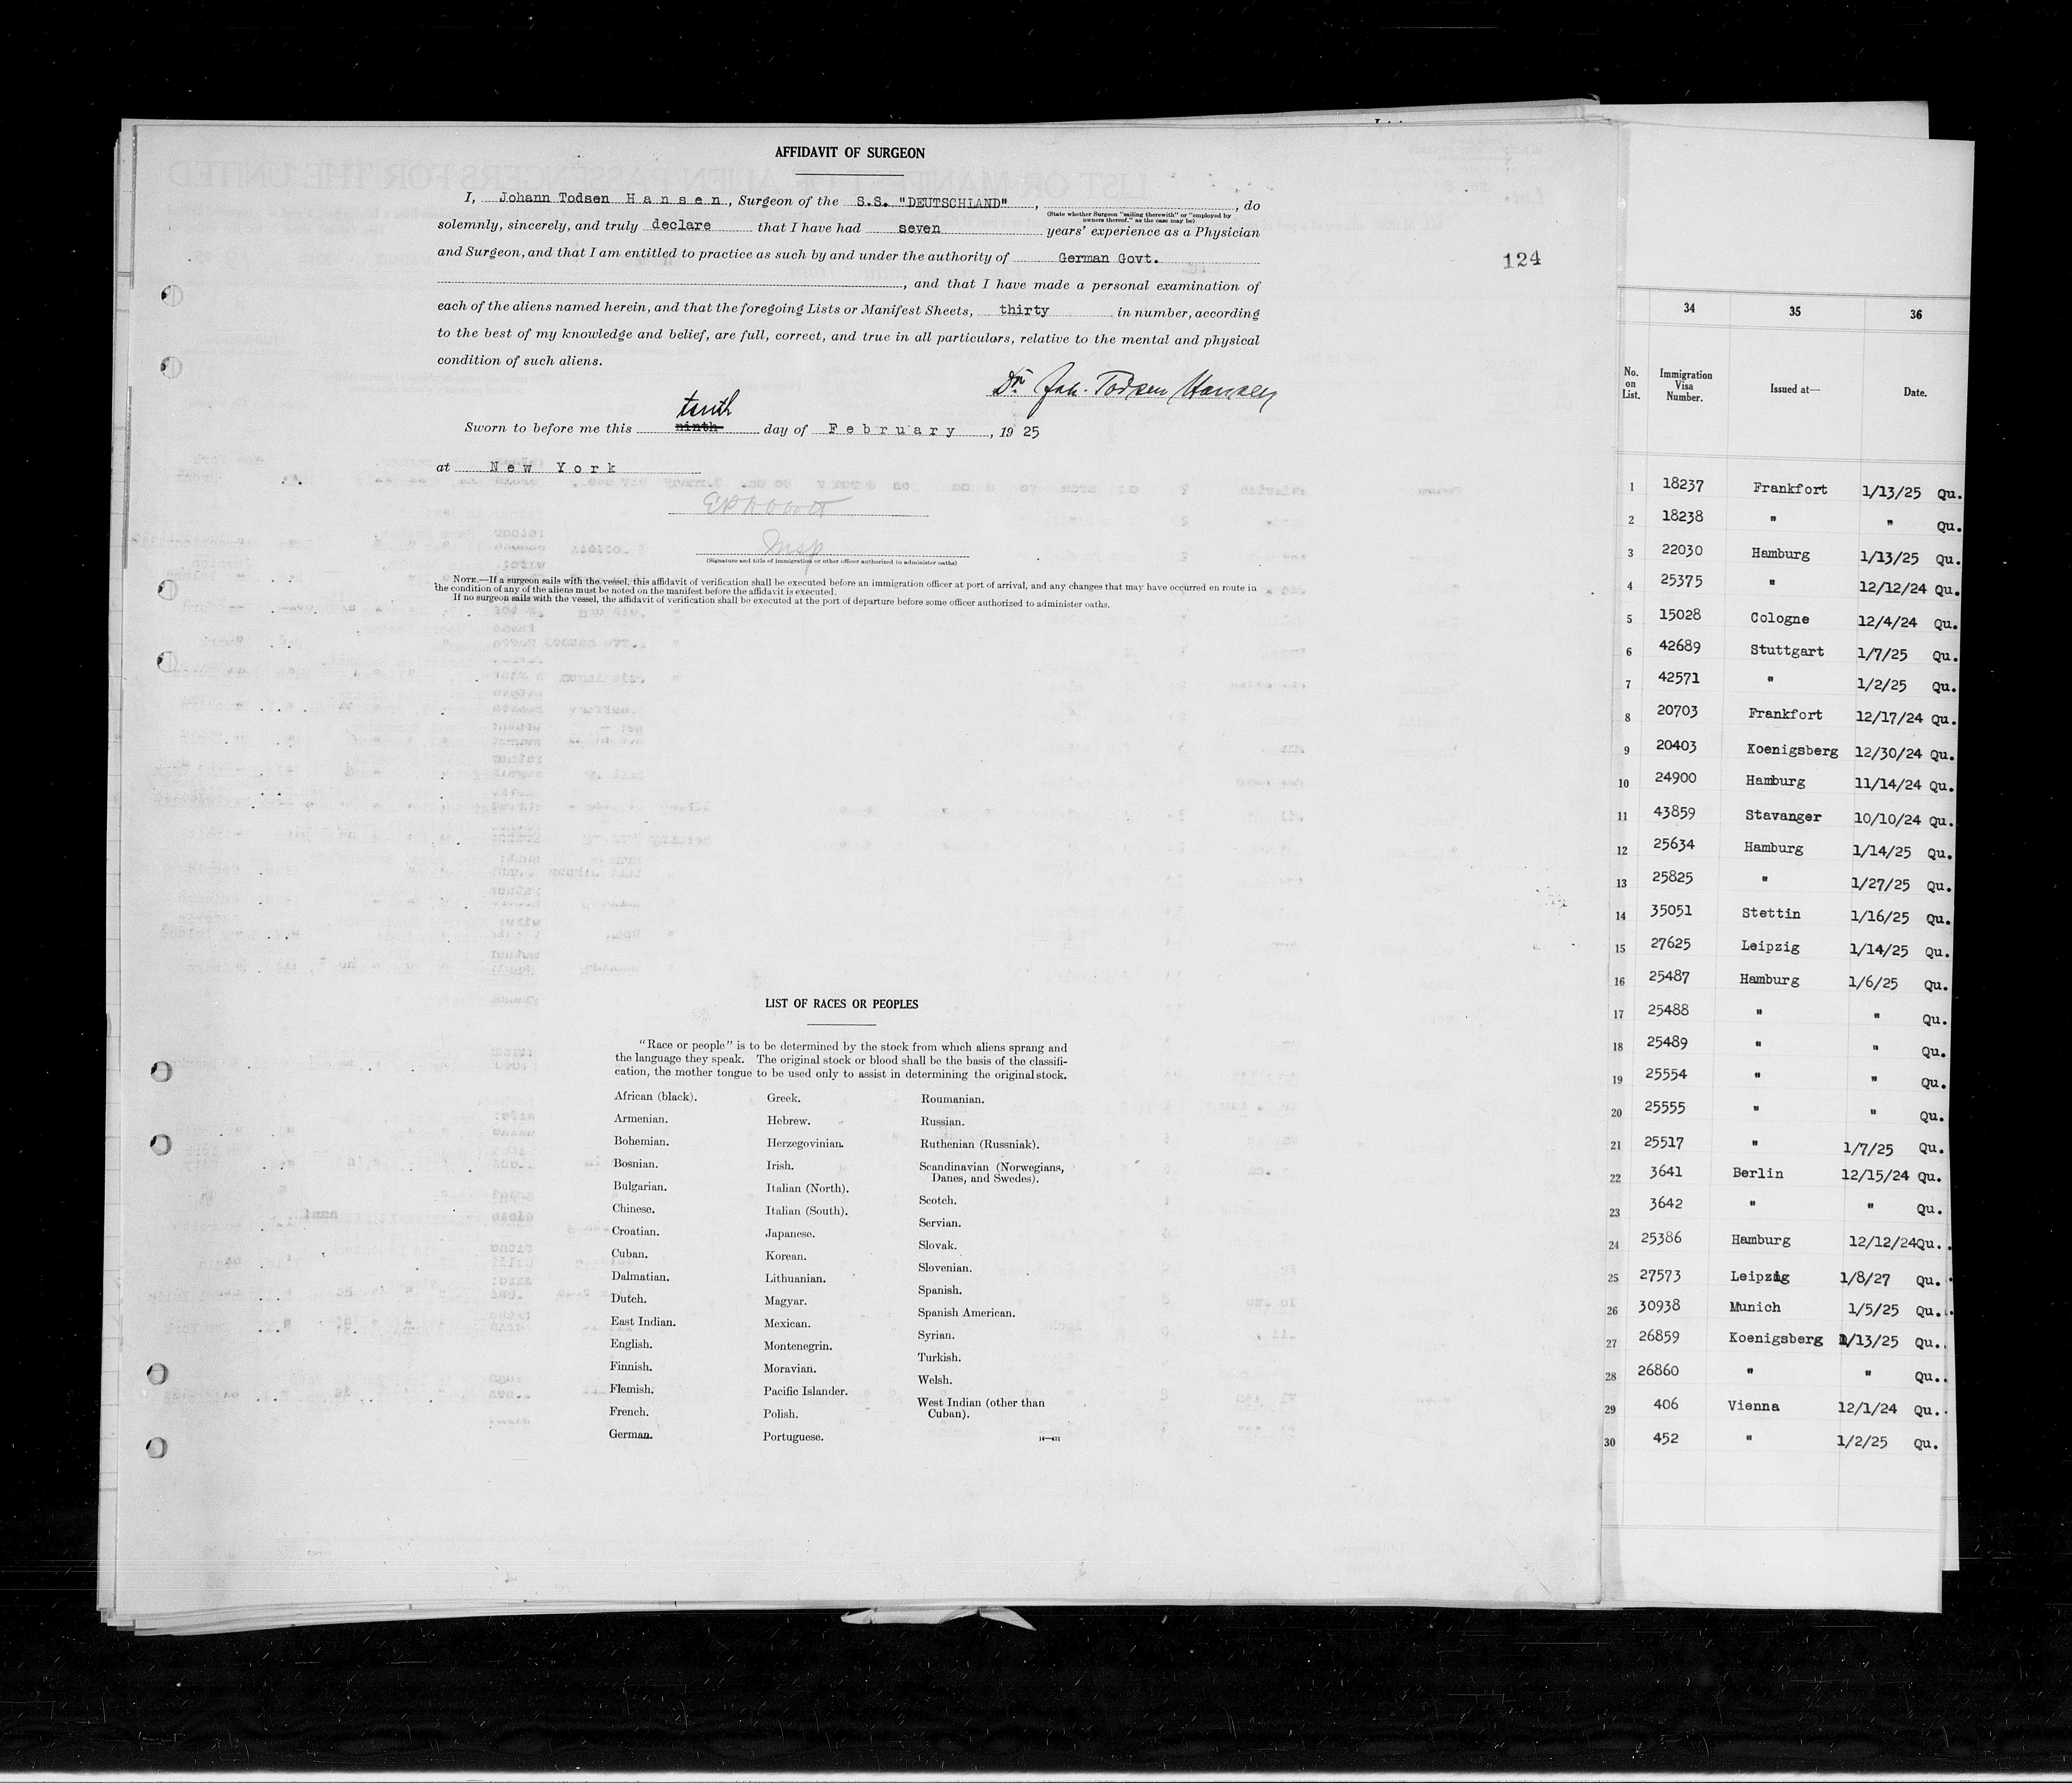 AFFIDAVIT OF SURGEON
I, Johann Todsen Hansen, Surgeon of the S.S. "DEUTSCHLAND", , do
(State whether Surgeon "sailing therewith" or "employed by
owners thereof," as the case may be)
solemnly, sincerely, and truly declare that I have had seven years' experience as a Physician
and Surgeon, and that I am entitled to practice as such by and under the authority of German Govt.
, and that I have made a personal examination of
each of the aliens named herein, and that the foregoing Lists or Manifest Sheets, thirty in number, according
to the best of my knowledge and belief, are full, correct, and true in all particulars, relative to the mental and physical
condition of such aliens.
Dr. Joh. Todsen Hansen
tenth
Sworn to before me this ninth day of February, 1925
at New York
Insp
(Signature and title of immigration or other officer authorized to administer oaths)
NOTE.—If a surgeon sails with the vessel, this affidavit of verification shall be executed before an immigration officer at port of arrival, and any changes that may have occurred en route in
the condition of any of the aliens must be noted on the manifest before the affidavit is executed.
If no surgeon sails with the vessel, the affidavit of verification shall be executed at the port of departure before some officer authorized to administer oaths.
124
LIST OF RACES OR PEOPLES
"Race or people" is to be determined by the stock from which aliens sprang and
the language they speak. The original stock or blood shall be the basis of the classifi-
cation, the mother tongue to be used only to assist in determining the original stock.
African (black).
Armenian.
Bohemian.
Bosnian.
Bulgarian.
Chinese.
Croatian.
Cuban.
Dalmatian.
Dutch.
East Indian.
English.
Finnish.
Flemish.
French.
German.
Greek.
Hebrew.
Herzegovinian.
Irish.
Italian (North).
Italian (South).
Japanese.
Korean.
Lithuanian.
Magyar.
Mexican.
Montenegrin.
Moravian.
Pacific Islander.
Polish.
Portuguese.
Roumanian.
Russian.
Ruthenian (Russniak).
Scandinavian (Norwegians,
Danes, and Swedes).
Scotch.
Servian.
Slovak.
Slovenian.
Spanish.
Spanish American.
Syrian.
Turkish.
Welsh.
West Indian (other than
Cuban).
14—431
34 35 36
No. on List. Immigration Visa Number. Issued at— Date.
1 18237 Frankfort 1/13/25 Qu.
2 18238 " " Qu.
3 22030 Hamburg 1/13/25 Qu.
4 25375 " 12/12/24 Qu.
5 15028 Cologne 12/4/24 Qu.
6 42689 Stuttgart 1/7/25 Qu.
7 42571 " 1/2/25 Qu.
8 20703 Frankfort 12/17/24 Qu.
9 20403 Koenigsberg 12/30/24 Qu.
10 24900 Hamburg 11/14/24 Qu.
11 43859 Stavanger 10/10/24 Qu.
12 25634 Hamburg 1/14/25 Qu.
13 25825 " 1/27/25 Qu.
14 35051 Stettin 1/16/25 Qu.
15 27625 Leipzig 1/14/25 Qu.
16 25487 Hamburg 1/6/25 Qu.
17 25488 " " Qu.
18 25489 " " Qu.
19 25554 " " Qu.
20 25555 " " Qu.
21 25517 " 1/7/25 Qu.
22 3641 Berlin 12/15/24 Qu.
23 3642 " " Qu.
24 25386 Hamburg 12/12/24 Qu.
25 27573 Leipzig 1/8/27 Qu.
26 30938 Munich 1/5/25 Qu.
27 26859 Koenigsberg 1/13/25 Qu.
28 26860 " " Qu.
29 406 Vienna 12/1/24 Qu.
30 452 " 1/2/25 Qu.